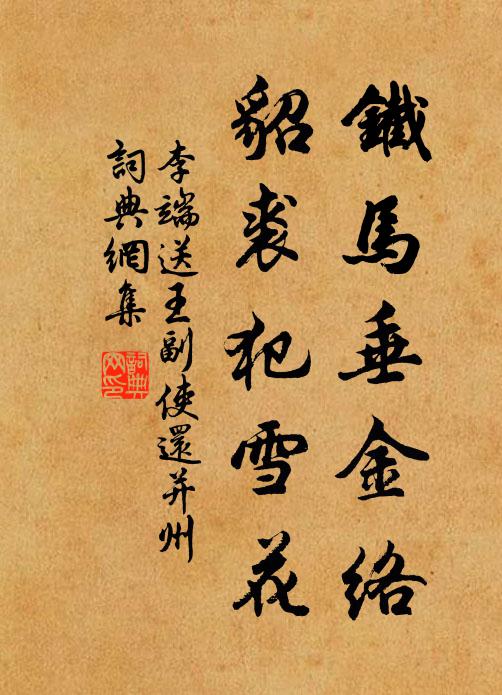 鐵馬垂金絡
貂裘犯雪花
李端送王副使還并州
詞典網集
詞典网印